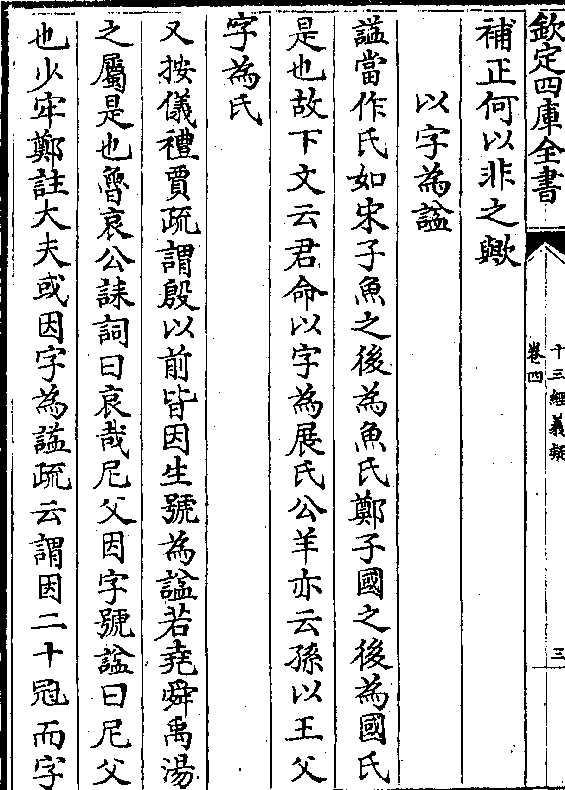 欽定四庫全書
十三經義疑
卷四
三
補正何以非之歟
以字為謚
謚當作氏如宋子魚之後為魚氏鄭子國之後為國氏
是也故下文云君命以字為展氏公羊亦云孫以王父
字為氏
又按儀禮賈疏謂殷以前皆因生號為謚若堯舜禹湯
之屬是也魯哀公誄詞曰哀哉尼父因字號謚曰尼父
也少牢鄭註大夫或因字為謚疏云謂因二十冠而字